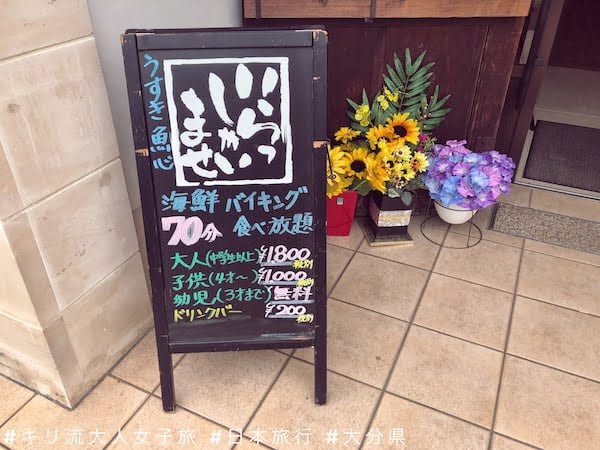 うすき魚心
いらっ
しゃい
ませ
海鮮 バイキング
70分 食べ放題
大人(中学生以上)¥1,800 税別
子供(4才〜)¥1,000 税別
幼児(3才まで) 無料
ドリンクバー ¥200 税別
#キリ流大人女子旅 #日本旅行 #大分県